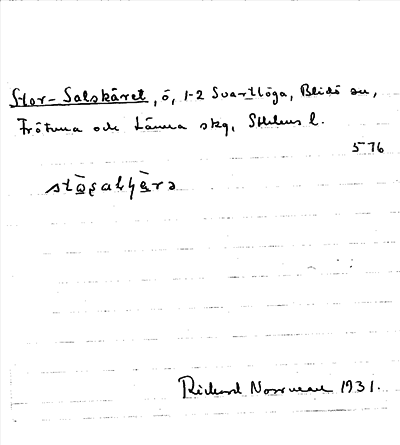 Stor-Salskäret, ö, 1-2 Svartlöga, Blidö sn,
Frötuna och Länna skg, Sthlms l.
576
Richard Norrman 1931.